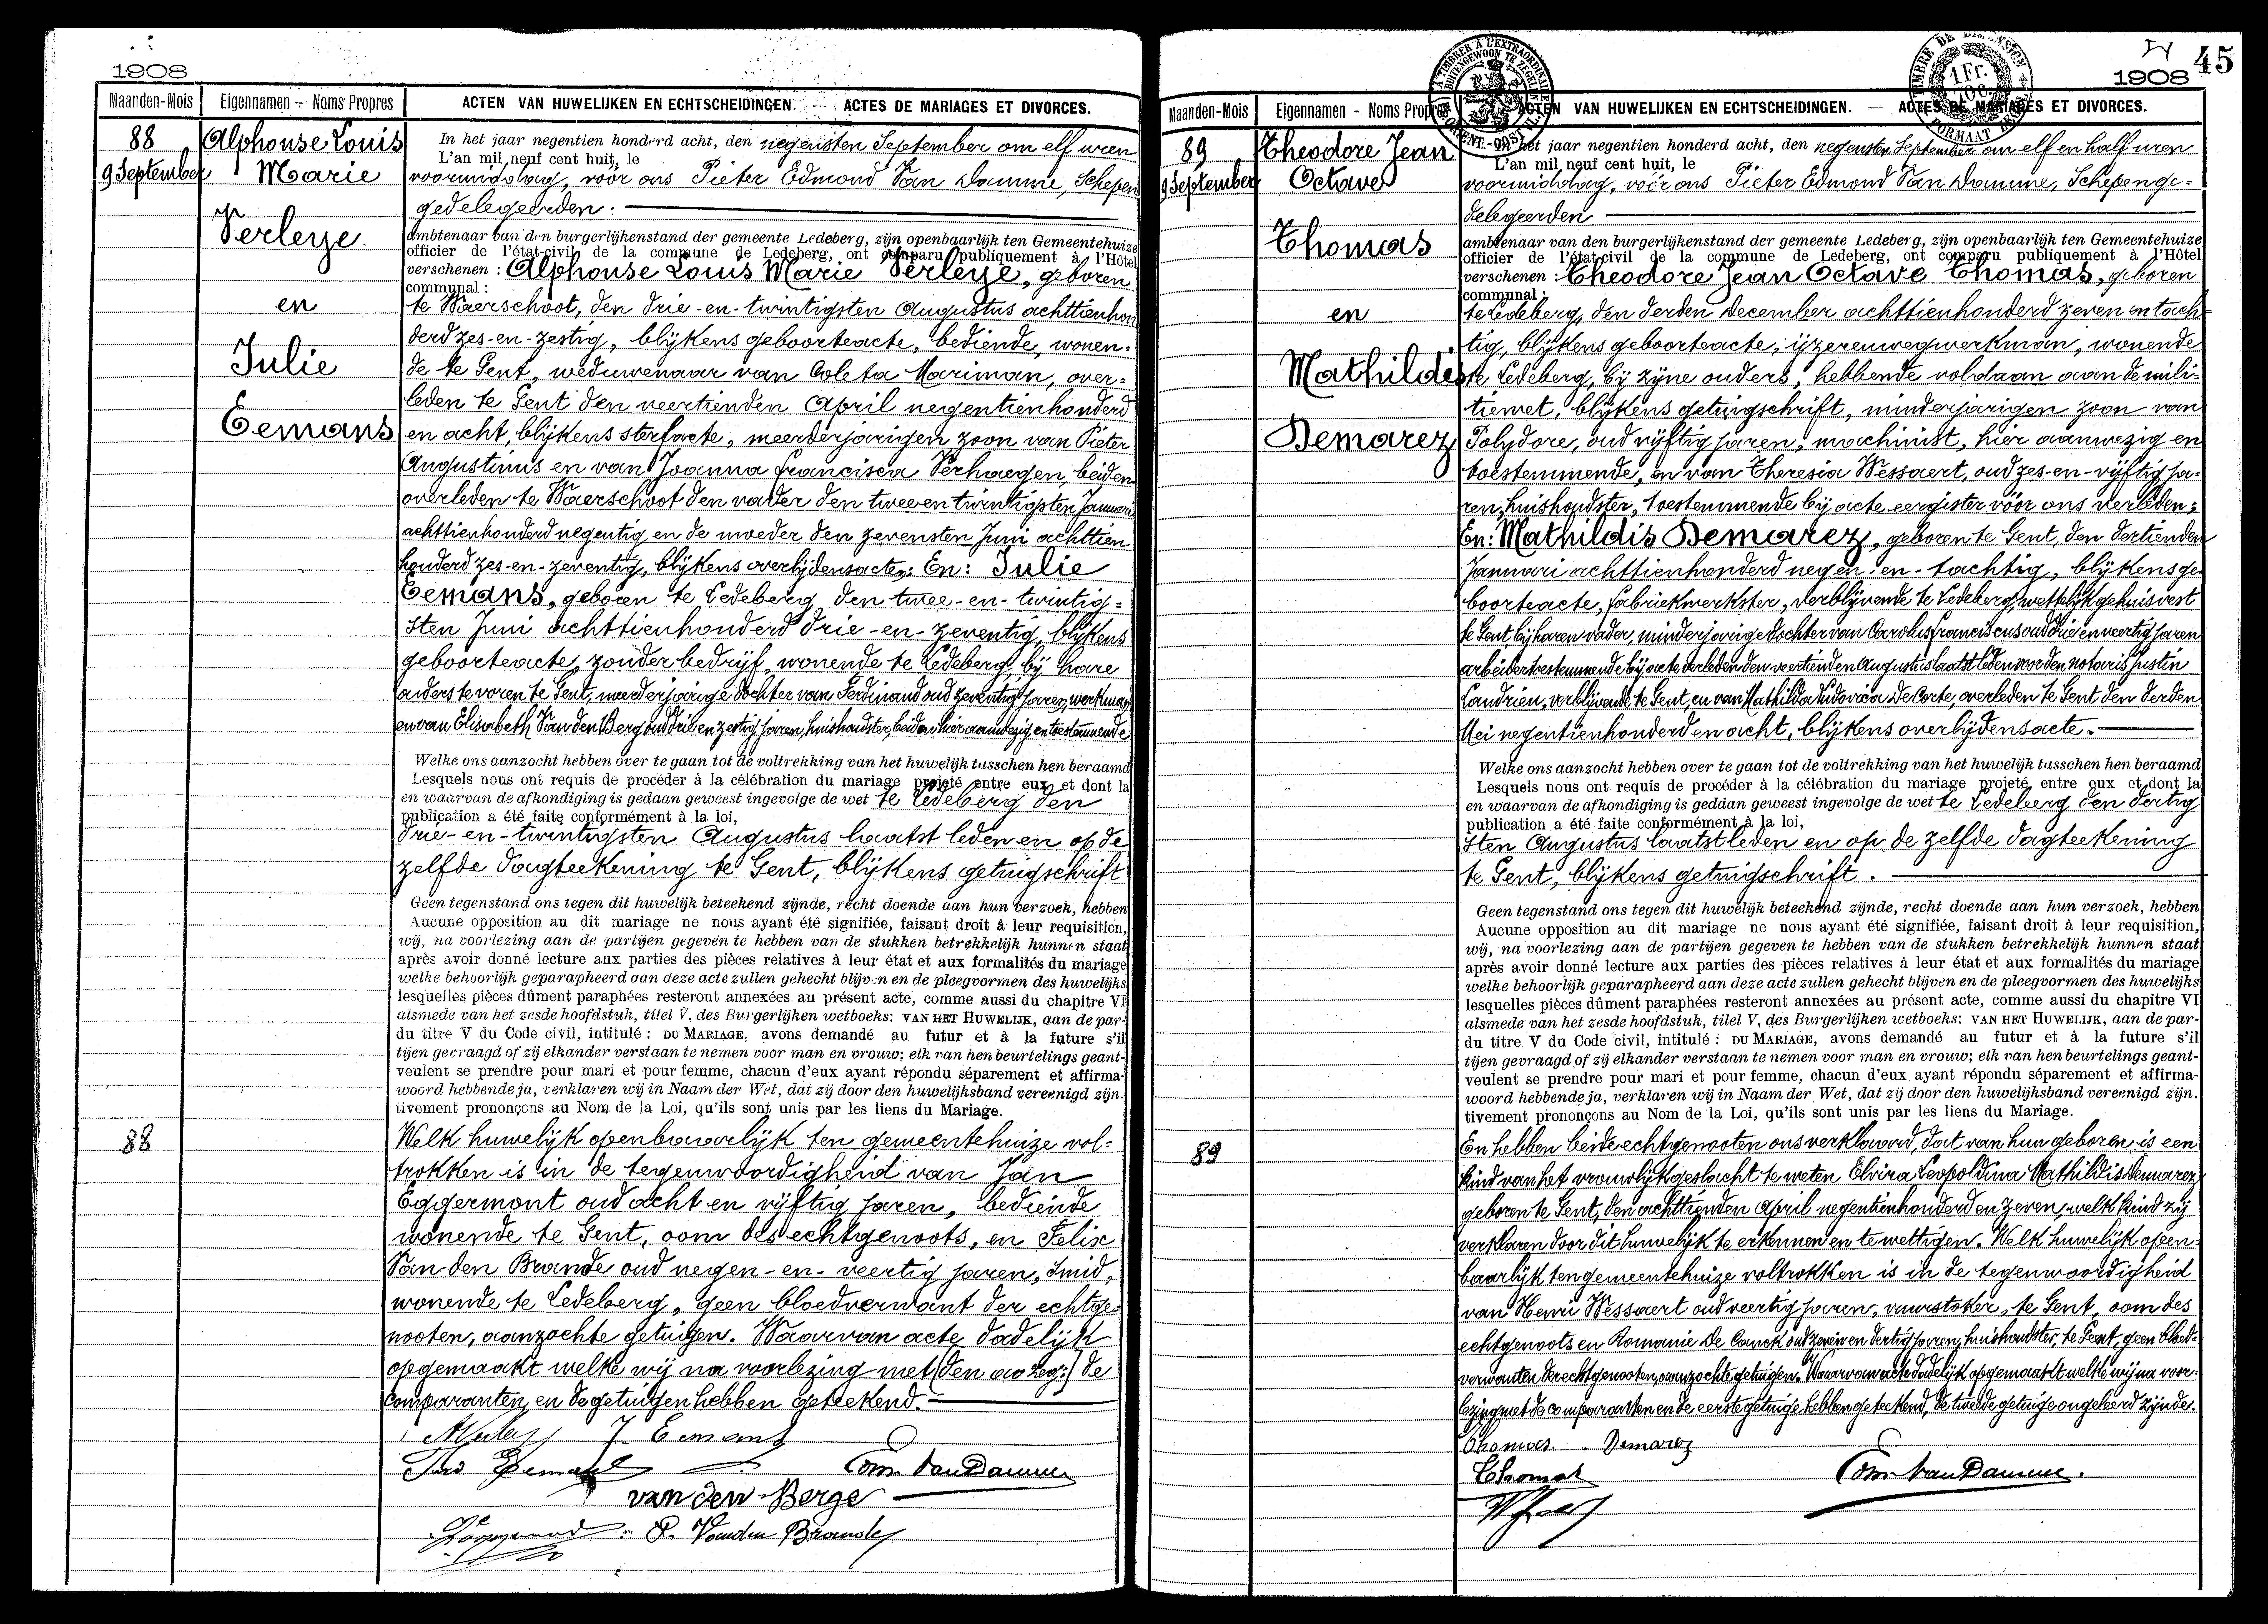 1908
Maanden-Mois Eigennamen – Noms Propres ACTEN VAN HUWELIJKEN EN ECHTSCHEIDINGEN. — ACTES DE MARIAGES ET DIVORCES.
88
9 September
Alphonse Louis
Marie
Verleye
en
Julie
Eemans
In het jaar negentien honderd acht, den negensten September om elf uren
L'an mil neuf cent huit, le
voormiddag, vóór ons Pieter Edmond Van Damme, Schepen
gedelegeerden:
ambtenaar van den burgerlijkenstand der gemeente Ledeberg, zijn openbaarlijk ten Gemeentehuize
officier de l'état-civil de la commune de Ledeberg, ont comparu publiquement à l'Hôtel
verschenen : Alphonse Louis Marie Verleye, geboren
communal :
te Waerschoot, den drie-en-twintigsten Augustus achttienhon
derd zes-en-zestig, blijkens geboorteacte, bediende, wonen-
de te Gent, weduwenaar van Coleta Mariman, over-
leden te Gent den veertienden April negentienhonderd
en acht, blijkens sterfacte, meerderjarigen zoon van Pieter
Augustinus en van Joanna Francisca Verhaegen, beiden
overleden te Waerschoot den vader den tweeentwintigsten Januari
achttienhonderd negentig en de moeder den zevensten Juni achttien
honderd zes-en-zeventig, blijkens overlijdensacten; En: Julie
Eemans, geboren te Ledeberg, den twee-en-twintig=
sten Juni achttienhonderd drie-en-zeventig, blijkens
geboorteacte, zonder bedrijf, wonende te Ledeberg, bij hare
ouders te voren te Gent, meerderjarige dochter van Ferdinand oud zeventig jaren, werkman
en van Elisabeth Van den Berg oud drie en zestig jaren, huishoudster, beiden hier aanwezig en toestemmende
Welke ons aanzocht hebben over te gaan tot de voltrekking van het huwelijk tusschen hen beraamd
Lesquels nous ont requis de procéder à la célébration du mariage projeté entre eux et dont la
en waarvan de afkondiging is gedaan geweest ingevolge de wet te Ledeberg den
publication a été faite conformément à la loi,
drie-en-twintigsten Augustus laatst leden en op de
zelfde dagteekening te Gent, blijkens getuigschrift
Geen tegenstand ons tegen dit huwelijk beteekend zijnde, recht doende aan hun verzoek, hebben
Aucune opposition au dit mariage ne nous ayant été signifiée, faisant droit à leur requisition,
wij, na voorlezing aan de partijen gegeven te hebben van de stukken betrekkelijk hunnen staat
après avoir donné lecture aux parties des pièces relatives à leur état et aux formalités du mariage
welke behoorlijk geparapheerd aan deze acte zullen gehecht blijven en de pleegvormen des huwelijks
lesquelles pièces dûment paraphées resteront annexées au présent acte, comme aussi du chapitre VI
alsmede van het zesde hoofdstuk, titel V, des Burgerlijken wetboeks: VAN HET HUWELIJK, aan de par-
du titre V du Code civil, intitulé : DU MARIAGE, avons demandé au futur et à la future s'il
tijen gevraagd of zij elkander verstaan te nemen voor man en vrouw; elk van hen beurtelings geant-
veulent se prendre pour mari et pour femme, chacun d'eux ayant répondu séparement et affirma-
woord hebbende ja, verklaren wij in Naam der Wet, dat zij door den huwelijksband vereenigd zijn.
tivement prononçons au Nom de la Loi, qu'ils sont unis par les liens du Mariage.
88
Welk huwelijk openbaarlijk ten gemeentehuize vol=
trokken is in de tegenwoordigheid van Jan
Eggermont oud acht en vijftig jaren, bediende
wonende te Gent, oom des echtgenoots, en Felix
Van den Brande oud negen-en-veertig jaren, smid,
wonende te Ledeberg, geen bloedverwant der echtge=
nooten, aanzochte getuigen. Waarvan acte dadelijk
opgemaakt welke wij na voorlezing met de
comparanten en de getuigen hebben geteekend.
J. Eemans
Edm. Van Damme
van den Berge
Vanden Brande
45
1908
Maanden-Mois Eigennamen - Noms Propres ACTEN VAN HUWELIJKEN EN ECHTSCHEIDINGEN. — ACTES DE MARIAGES ET DIVORCES.
89
9 September
Theodore Jean
Octave
Thomas
en
Mathildis
Demarez
In het jaar negentien honderd acht, den negensten September om elf en half uren
L'an mil neuf cent huit, le
voormiddag, vóór ons Pieter Edmond Van Damme, Schepen ge=
delegeerden
ambtenaar van den burgerlijkenstand der gemeente Ledeberg, zijn openbaarlijk ten Gemeentehuize
officier de l'état-civil de la commune de Ledeberg, ont comparu publiquement à l'Hôtel
verschenen : Theodore Jean Octave Thomas, geboren
communal :
te Ledeberg, den derden December achttienhonderd zeven en tach=
tig, blijkens geboorteacte, ijzerenwegwerkman, wonende
te Ledeberg, bij zijne ouders, hebbende voldaan aan de mili=
tiewet, blijkens getuigschrift, minderjarigen zoon van
Polydore, oud vijftig jaren, machinist, hier aanwezig en
toestemmende, en van Theresia Wessaert, oud zes-en-vijftig ja=
ren, huishoudster, toestemmende bij acte eergister vóór ons verleden;
En: Mathildis Demarez, geboren te Gent, den dertienden
Januari achttienhonderd negen-en-tachtig, blijkens ge
boorteacte, fabriekwerkster, verblijvende te Ledeberg, wettelijk gehuisvest
te Gent, bij haren vader, minderjarige dochter van Carolus Franciscus oud drie en veertig jaren
arbeider toestemmende bij acte verleden den veertienden Augustus laatstleden voor den notaris Justin
Landrien, verblijvende te Gent, en van Mathilda Ludovica De Corte, overleden te Gent den derden
Mei negentienhonderd en acht, blijkens overlijdensacte.
Welke ons aanzocht hebben over te gaan tot de voltrekking van het huwelijk tusschen hen beraamd
Lesquels nous ont requis de procéder à la célébration du mariage projeté entre eux et dont la
en waarvan de afkondiging is gedaan geweest ingevolge de wet te Ledeberg den dertig
publication a été faite conformément à la loi,
sten Augustus laatst leden en op de zelfde dagteekening
te Gent, blijkens getuigschrift.
Geen tegenstand ons tegen dit huwelijk beteekend zijnde, recht doende aan hun verzoek, hebben
Aucune opposition au dit mariage ne nous ayant été signifiée, faisant droit à leur requisition,
wij, na voorlezing aan de partijen gegeven te hebben van de stukken betrekkelijk hunnen staat
après avoir donné lecture aux parties des pièces relatives à leur état et aux formalités du mariage
welke behoorlijk geparapheerd aan deze acte zullen gehecht blijven en de pleegvormen des huwelijks
lesquelles pièces dûment paraphées resteront annexées au présent acte, comme aussi du chapitre VI
alsmede van het zesde hoofdstuk, titel V, des Burgerlijken wetboeks: VAN HET HUWELIJK, aan de par-
du titre V du Code civil, intitulé : DU MARIAGE, avons demandé au futur et à la future s'il
tijen gevraagd of zij elkander verstaan te nemen voor man en vrouw; elk van hen beurtelings geant-
veulent se prendre pour mari et pour femme, chacun d'eux ayant répondu séparement et affirma-
woord hebbende ja, verklaren wij in Naam der Wet, dat zij door den huwelijksband vereenigd zijn.
tivement prononçons au Nom de la Loi, qu'ils sont unis par les liens du Mariage.
89
En hebben beide echtgenooten ons verklaard, dat van hun geboren is een
kind van het vrouwlijk geslacht te weten Elvira Leopoldina Mathildis Demarez
geboren te Gent, den achttienden April negentienhonderd en zeven, welk kind zij
verklaren door dit huwelijk te erkennen en te wettigen. Welk huwelijk open=
baarlijk ten gemeentehuize voltrokken is in de tegenwoordigheid
van Henri Wessaert oud veertig jaren, vuurstoker, te Gent, oom des
echtgenoots en Romanie De Counck oud zeven en dertig jaren, huishoudster, te Gent, geen bloed=
verwanten der echtgenooten, aanzochte getuigen. Waarvan acte dadelijk opgemaakt welke wij na voor=
lezing met de comparanten en de eerste getuige hebben geteekend, de tweede getuige ongeleerd zijnde.
Thomas. Demarez
Thomas
Edm. Van Damme.